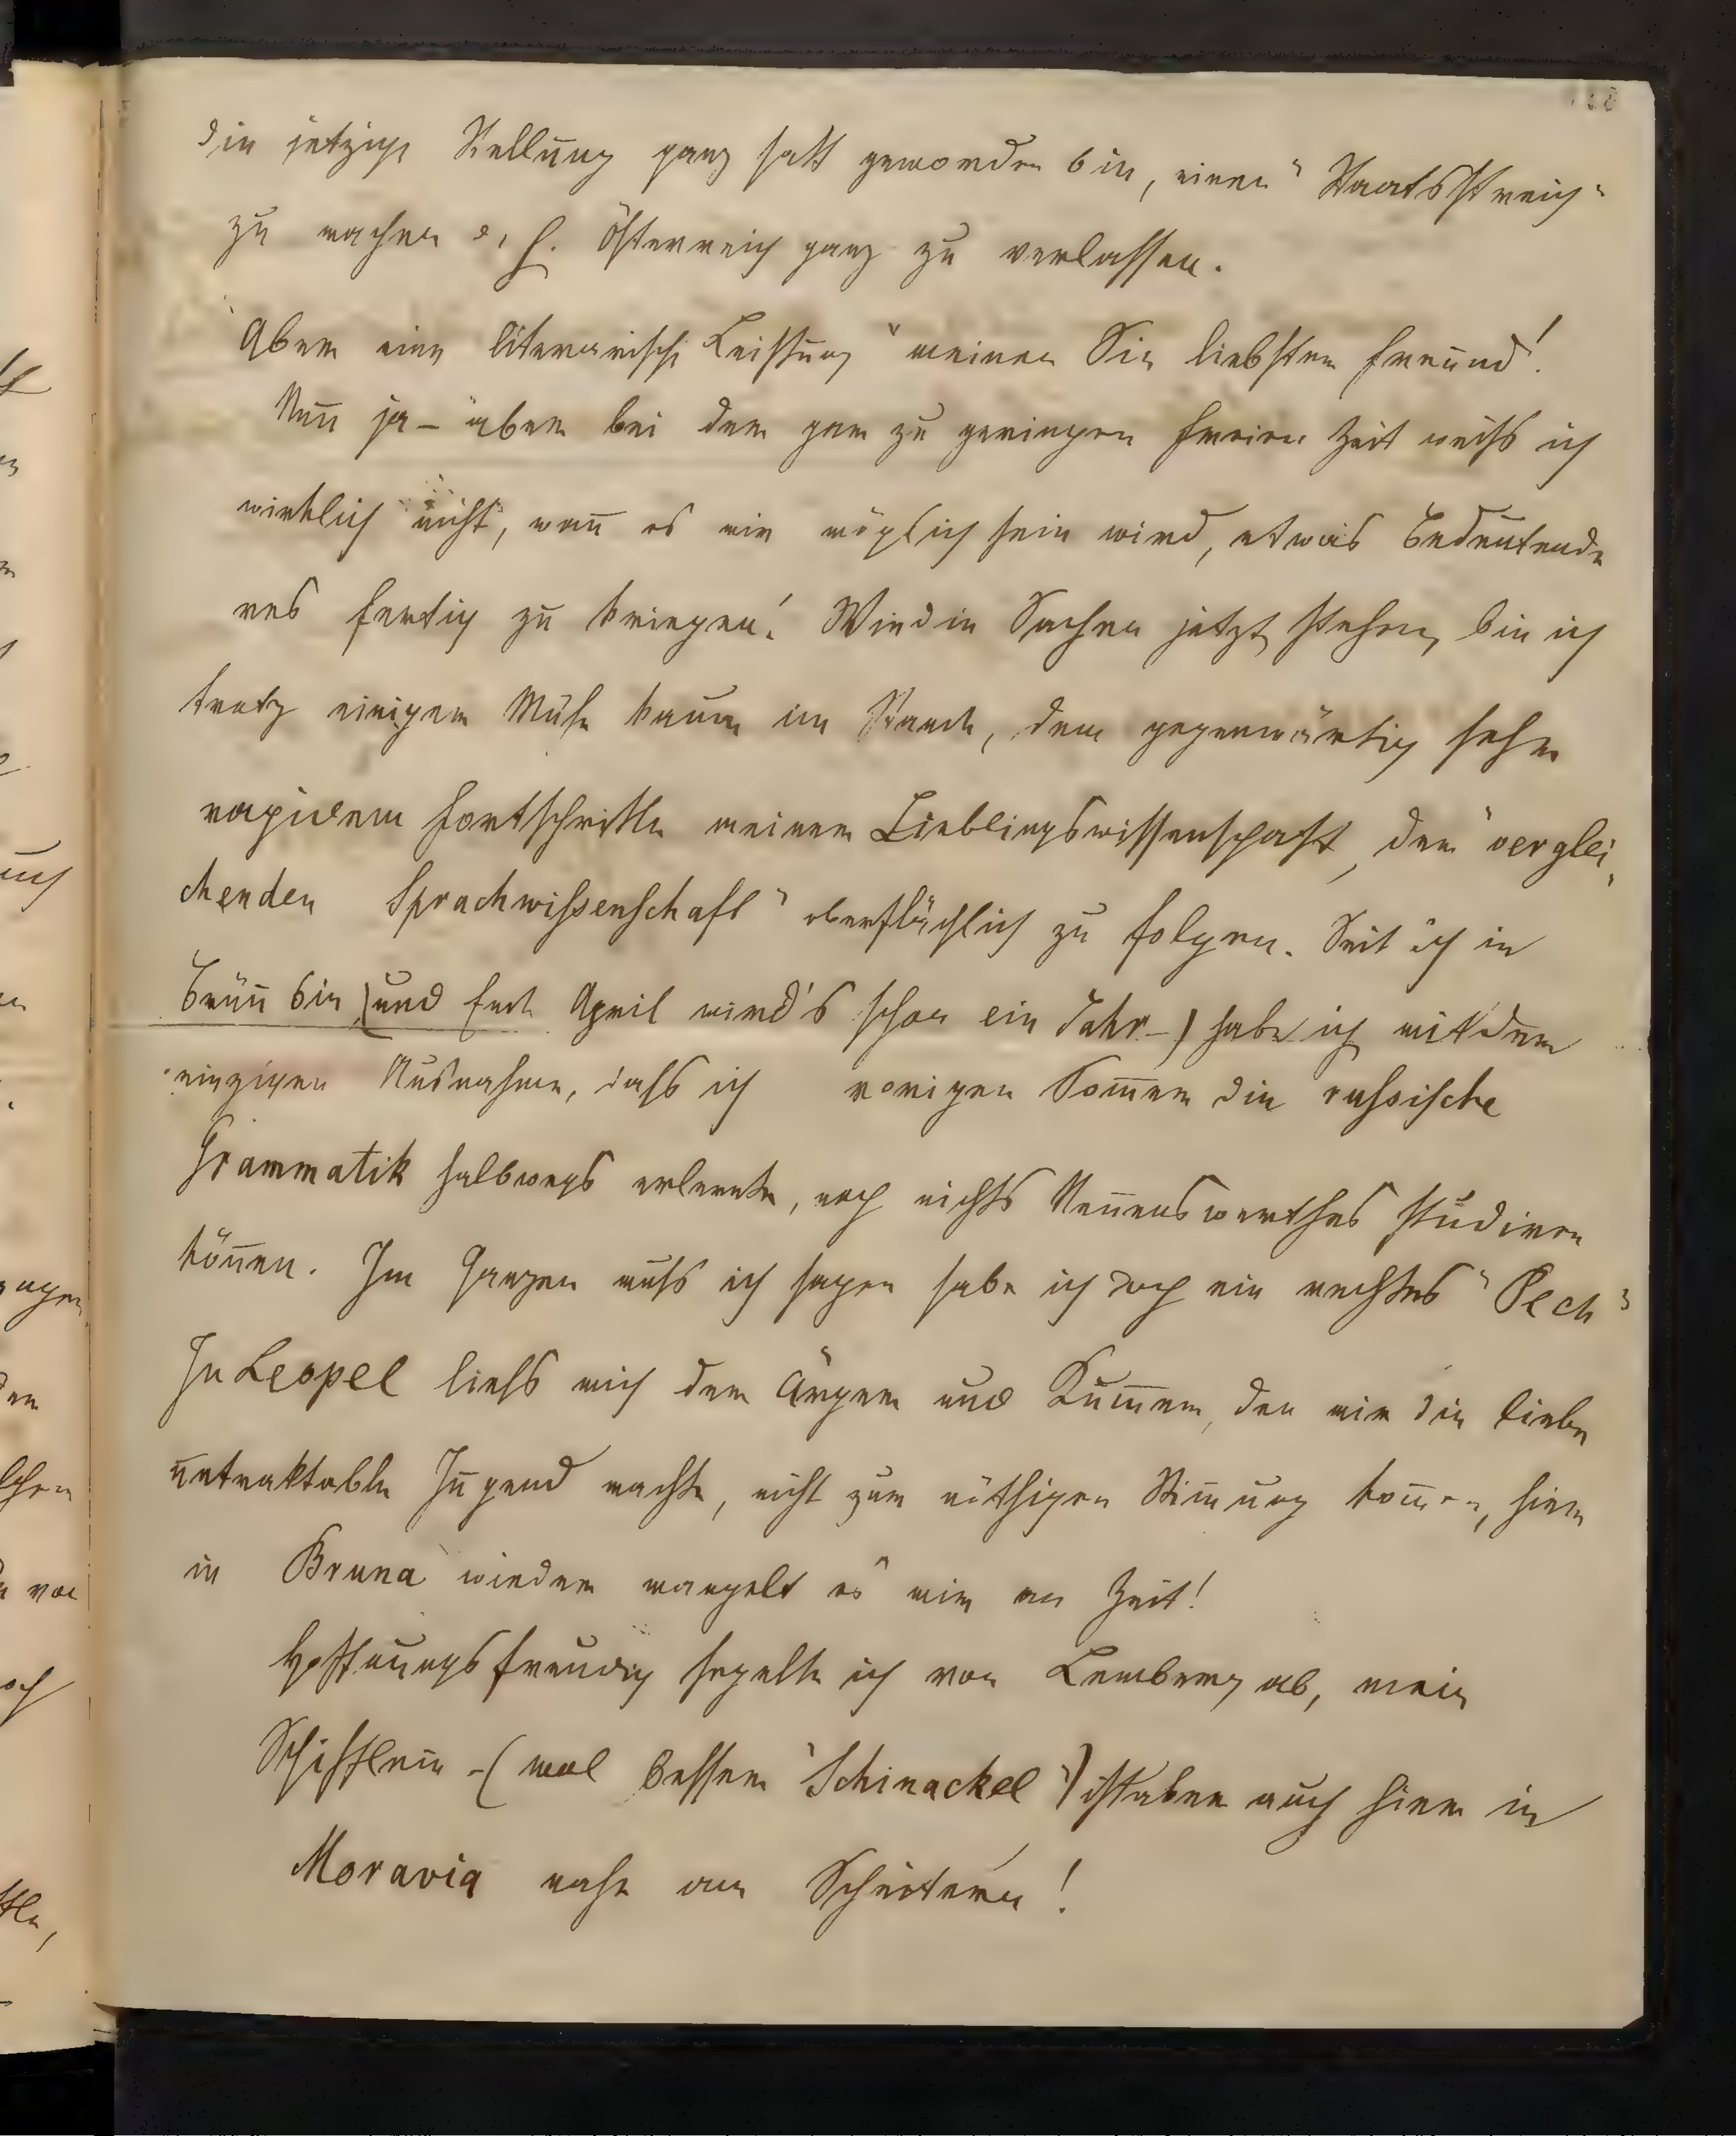 die jetzige Stellung ganz satt geworden bin, einen "Staatsstreich"
zu machen d. h. Österreich ganz zu verlassen.
Aber eine literarische Leistung "meinen Sie liebster Freund!
Nun ja – aber bei der gar zu geringen freien Zeit weiß ich
wirklich nicht, wann es mir möglich sein wird, etwas Bedeutende
res fertig zu kriegen! Wie die Sachen jetzt stehen, bin ich
trotz einiger Mühe kaum im Stande, dem gegenwärtig sehr
rapidem Fortschritte meiner Lieblingswissenschaft, der "verglei,
chenden Sprachwissenschaft" oberflächlich zu folgen. Seit ich in
Brünn bin (und Ende April wird's schon ein Jahr –) habe ich mit der
einzigen Ausnahme, daß ich vorigen Sommer die russische
Grammatik halbwegs erlernte, noch nichts Nennenswerthes studiren
können. Im Ganzen muß ich sagen habe ich doch ein rechtes "Pech"
In Leopel ließ mich der Ärger und Kummer, den mir die liebe
untraktable Jugend machte, nicht zur nöthigen Stimmung kommen, hier
in Bruna wieder mangelt es mir an Zeit!
Hoffnungsfreudig segelte ich von Lemberg ab, mein
Schifflein – (wol besser "Schinackel") ist aber auch hier in
Moravia nahe am Scheitern!